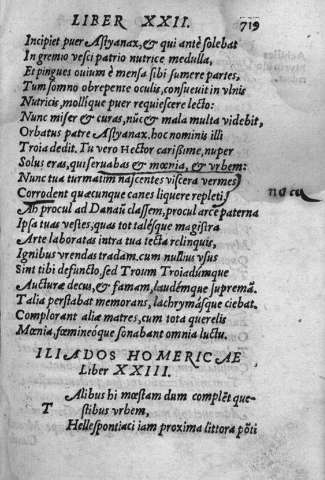 LIBER XXII. 719
Incipiet puer Astyanax, & qui antè solebat
In gremio vesci patrio nutrice medulla,
Et pingues ouium è mensa sibi sumere partes,
Tum somno obrepente oculis, consueuit in vlnis
Nutricis, mollique puer requiescere lecto:
Nunc miser & curas, nũc & mala multa videbit,
Orbatus patre Astyanax, hoc nominis illi
Troia dedit. Tu vero Hector carissime, nuper
Solus eras, qui seruabas & mœnia, & vrbem:
Nunc tua turmatim nascentes viscera vermes
Corrodent quacunque canes liquere repleti,
Ah procul ad Danaũ classem, procul arce paterna
Ipsa tuas vestes, quas tot talésque magistra
Arte laboratas intra tua tecta relinquis,
Ignibus vrendas tradam, cum nullius vsus
Sint tibi defuncto, sed Troum Troiadúmque
Aucturæ decus, & famam, laudémque supremã.
Talia perstabat memorans, lachrymásque ciebat.
Complorant aliæ matres, cum tota querelis
Mœnia, fœmineóque sonabant omnia luctu.
ILIADOS HOMERICAE
Liber XXIII.
Talibus hi mœstam dum complẽt que-
stibus vrbem,
Hellespontiaci iam proxima littora põti